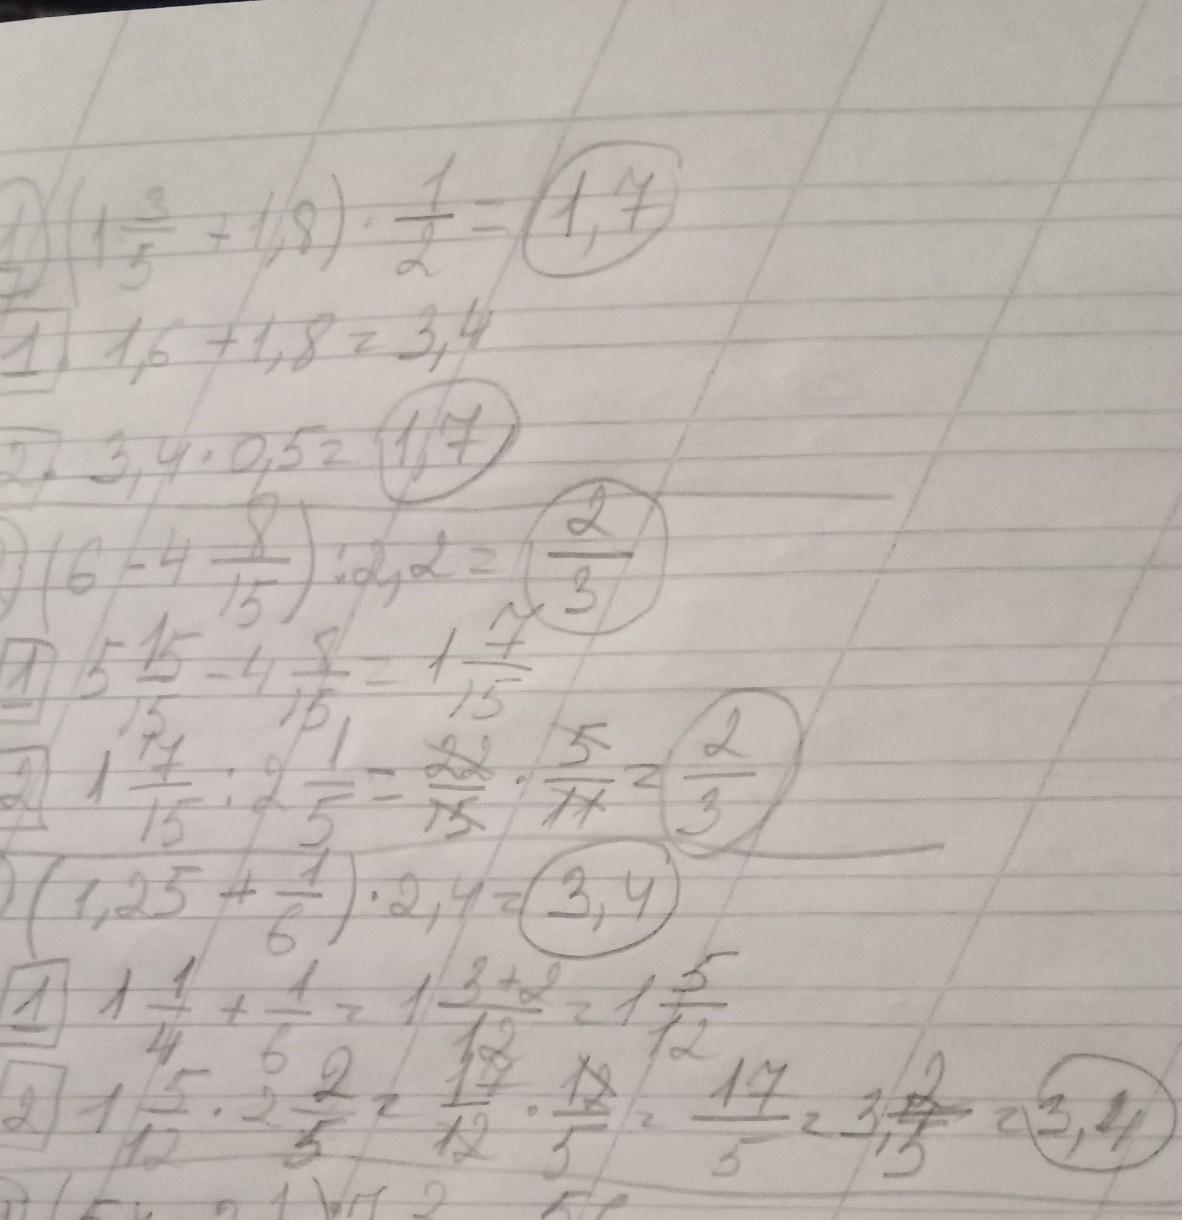 (1 3/5 + 1,8) · 1/2 = 1,7
1. 1,6 + 1,8 = 3,4
2. 3,4 · 0,5 = 1,7
(6 - 4 8/15) : 2,2 = 2/3
1 5 15/15 - 4 8/15 = 1 7/15
2 1 7/15 : 2 1/5 = 22/15 · 5/11 = 2/3
(1,25 + 1/6) · 2,4 = 3,4
1 1 1/4 + 1/6 = 1 3+2/12 = 1 5/12
2 1 5/12 · 2 2/5 = 17/12 · 12/5 = 17/5 = 3 2/5 = 3,4